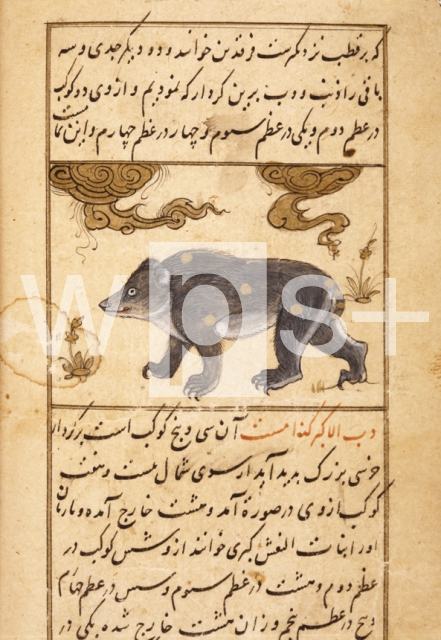 که بر قطب نزدیکست فرقدین خوانند و دو دیگر جدی و سه
باقی را ذنب و دب برین کردار که نمودیم و ازوی دو کوکب
در عظم دوم و یکی در عظم سوم و چهار در عظم چهارم و این نما
wps+
دب الاکبر کذا مست آن سی و پنج کوکب است بر کردار
خرسی بزرگ پدید آید از سوی شمال مست و هفت
کوکب ازوی در صورة آمد و هشت خارج آمده و پارسیان
اورا بنات النعش کبری خوانند ازو شش کوکب در
عظم دوم و هشت در عظم سوم و سس در عظم چهارم
و پنج در عظم پنجم وزان هشت خارج شده یکی در